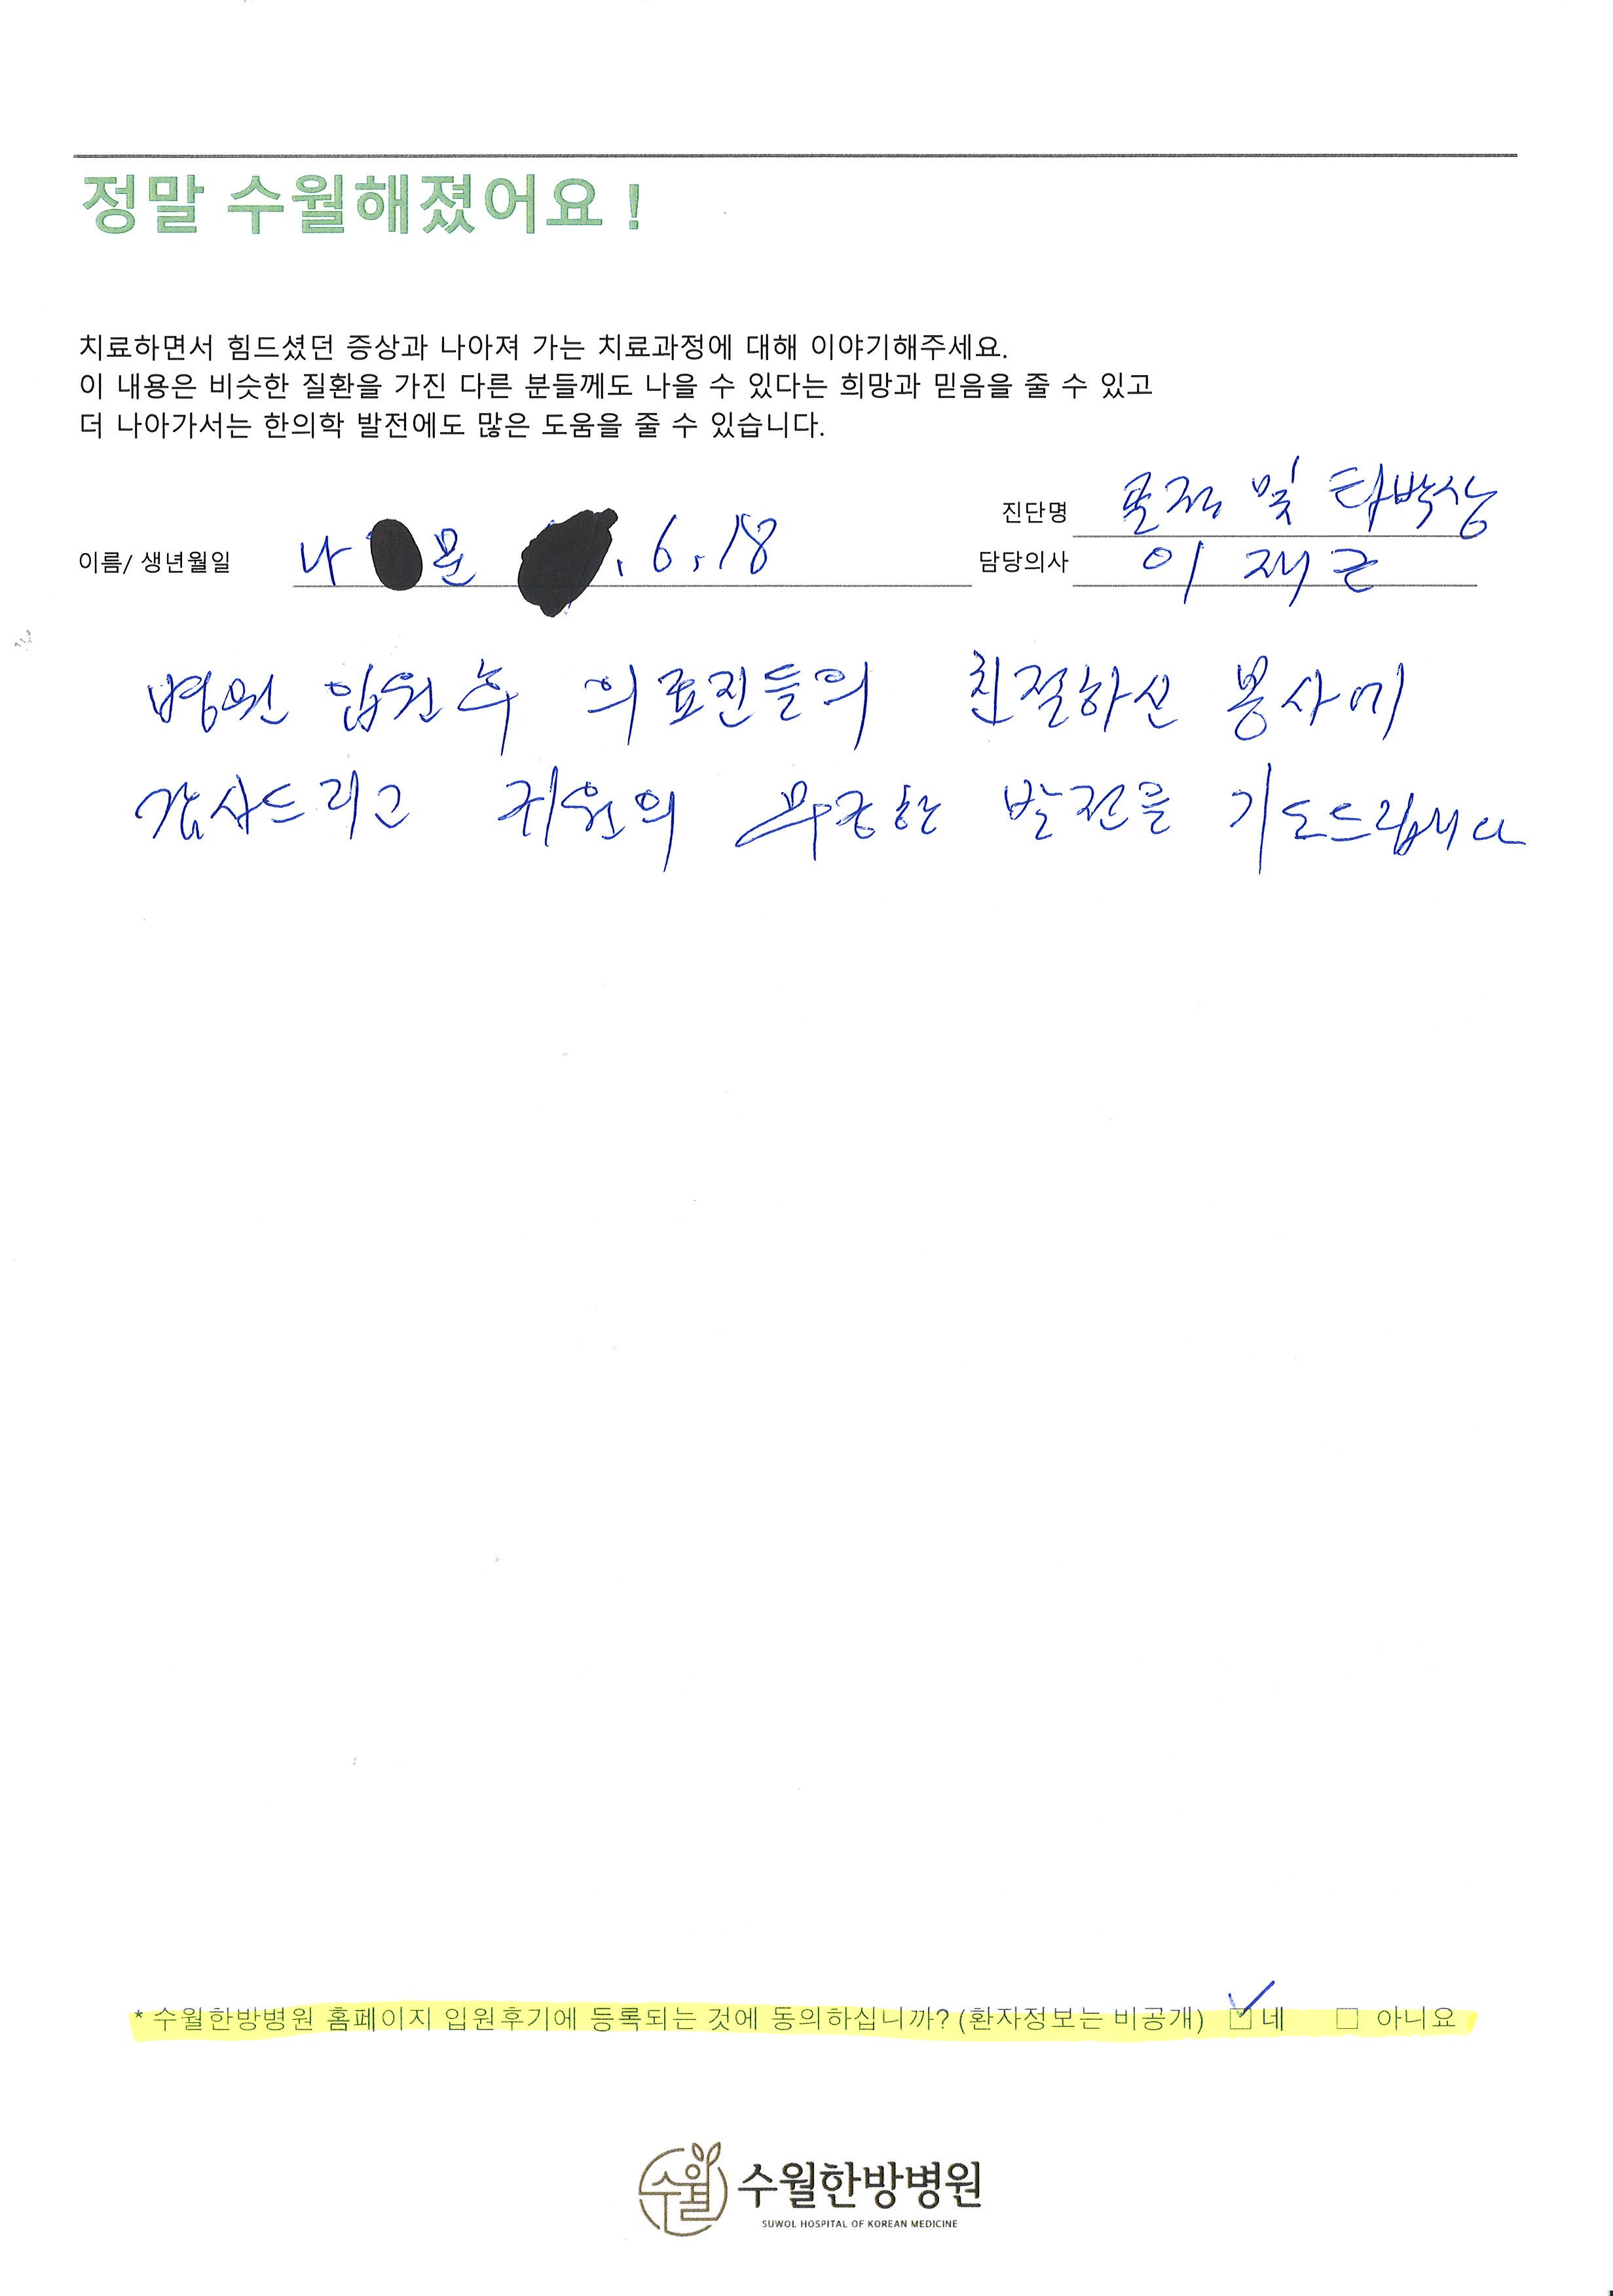 정말 수월해졌어요 !
치료하면서 힘드셨던 증상과 나아져 가는 치료과정에 대해 이야기해주세요.
이 내용은 비슷한 질환을 가진 다른 분들께도 나을 수 있다는 희망과 믿음을 줄 수 있고
더 나아가서는 한의학 발전에도 많은 도움을 줄 수 있습니다.
진단명 및 타박상
이름/ 생년월일 나 문 . 6. 18 담당의사 이재근
병원 입원후 의료진들의 친절하신 봉사에
감사드리고 귀원의 무궁한 발전을 기도드립니다
* 수월한방병원 홈페이지 입원후기에 등록되는 것에 동의하십니까? (환자정보는 비공개) ☑ 네 □ 아니요
수월 수월한방병원
SUWOL HOSPITAL OF KOREAN MEDICINE